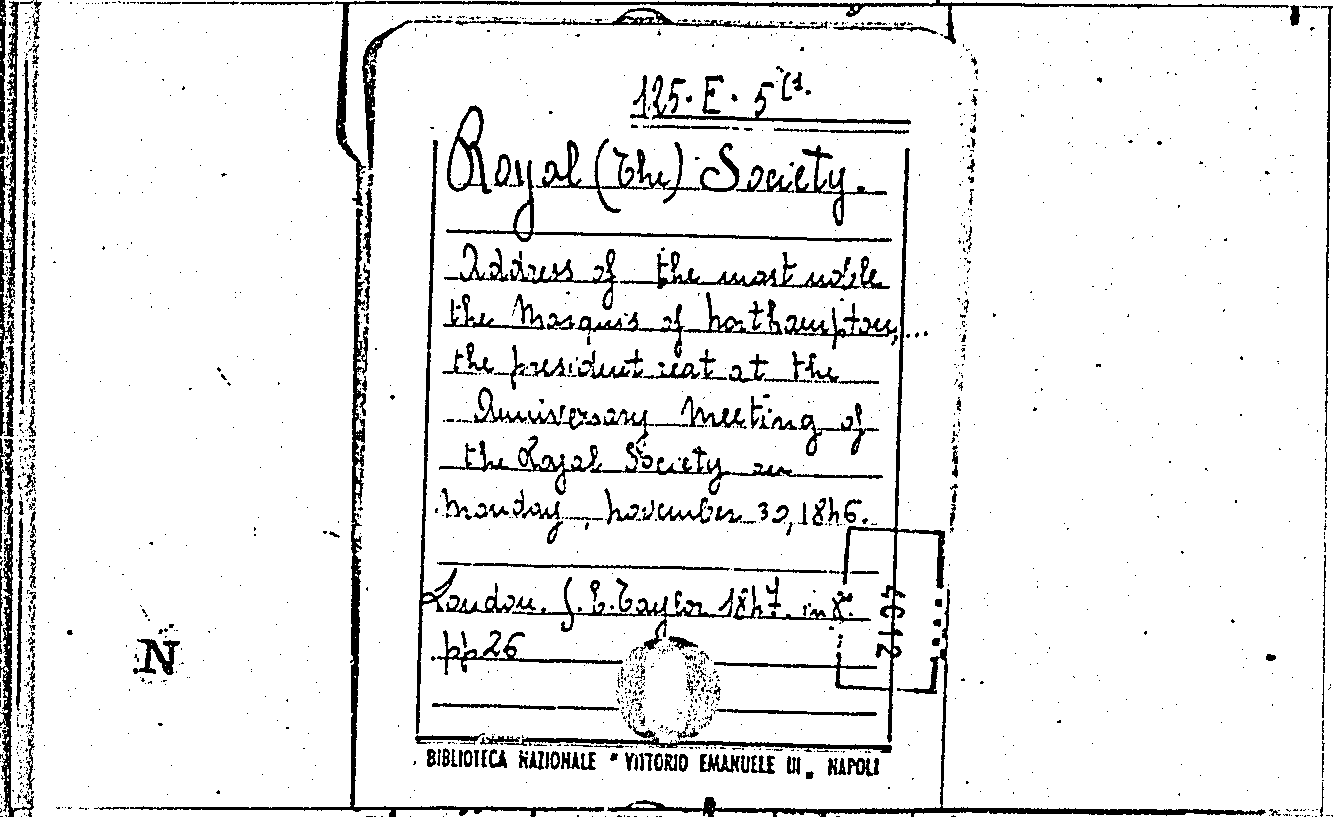 125. E. 5 (1.
Royal (The) Society.
Address of the most noble
the Marquis of Northampton,...
the president reat at the
Anniversary Meeting of
the Royal Society on
Monday, November 30, 1846.
London. J. E. Taylor 1847. in 8°.
pp 26
N
BIBLIOTECA NAZIONALE "VITTORIO EMANUELE III„ NAPOLI